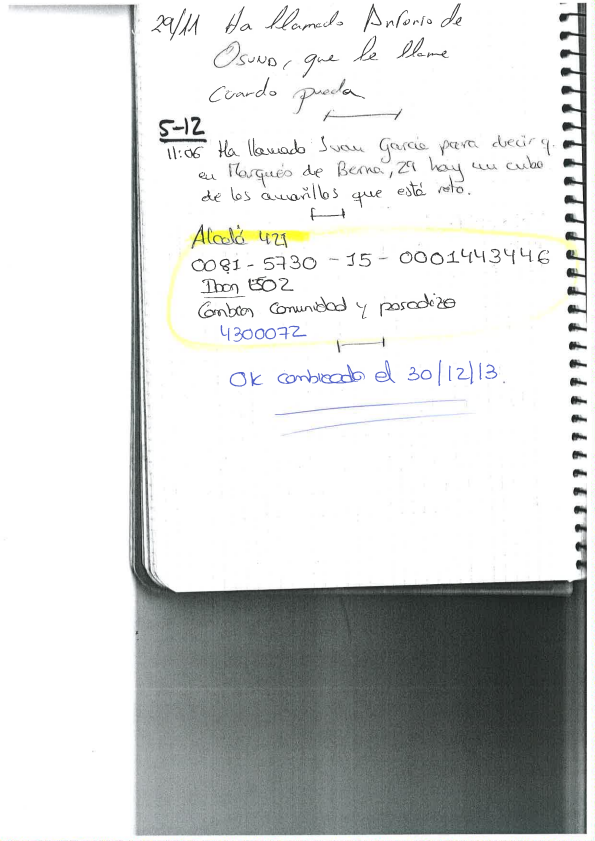 29/11 Ha llamado Antonio de
Osuna, que le llame
cuando pueda
5-12
11:06 Ha llamado Ivan Garcia para decir q.
en Marqués de Berna, 29 hay un cubo
de los amarillos que está roto.
Alcalá 421
0081-5730-15-0001443446
Iban ES02
Cambian Comunidad y pasadizo
4300072
OK cambiado el 30/12/13.